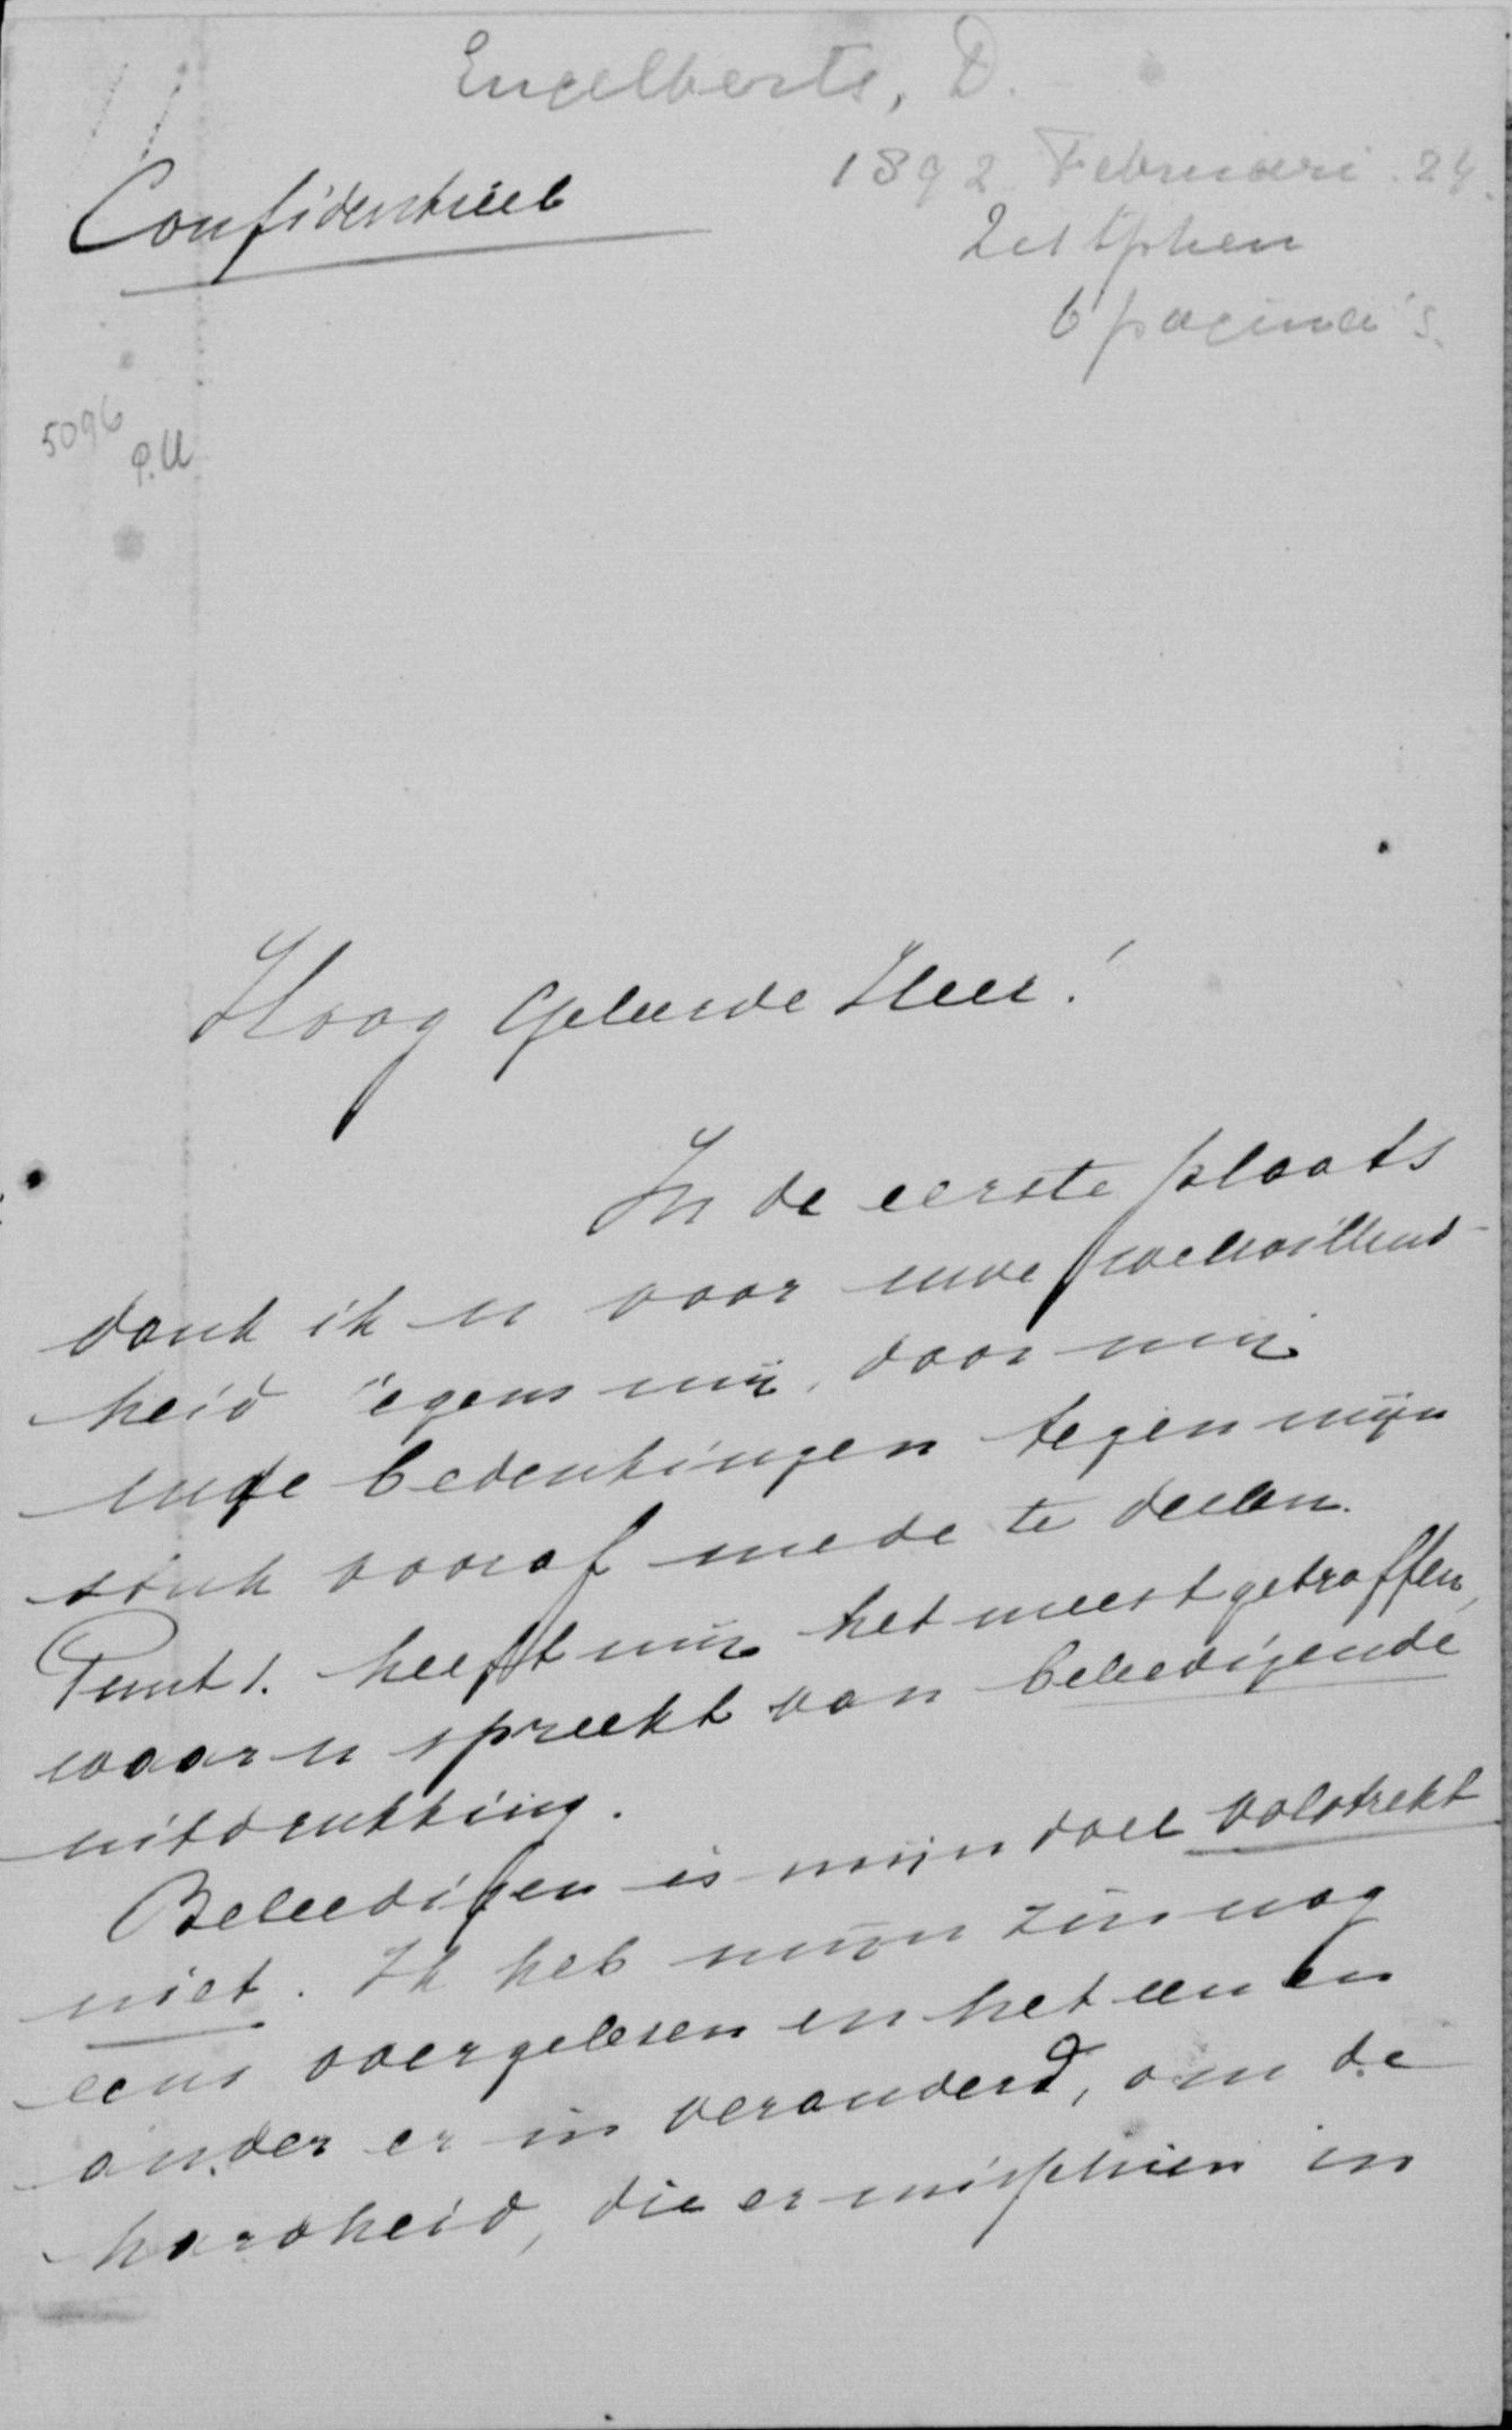 Engelberts, D.
1892 Februari. 24.
Confidentieel
Zutphen
6 pagina's.
5096
P.U
Hoog Geleerde Heer!
In de eerste plaats
dank ik u voor uwe welwillend-
heid jegens mij, door mij
uwe bedenkingen tegen mijn
stuk vooraf mede te deelen.
Punt 1. heeft mij het meest getroffen,
waar u spreekt van beleedigende
uitdrukking.
Beleedigen is mijn doel volstrekt
niet. Ik heb mijn zin nog
eens overgelezen en het een en
ander er in veranderd, om de
hardheid, die er misschien in